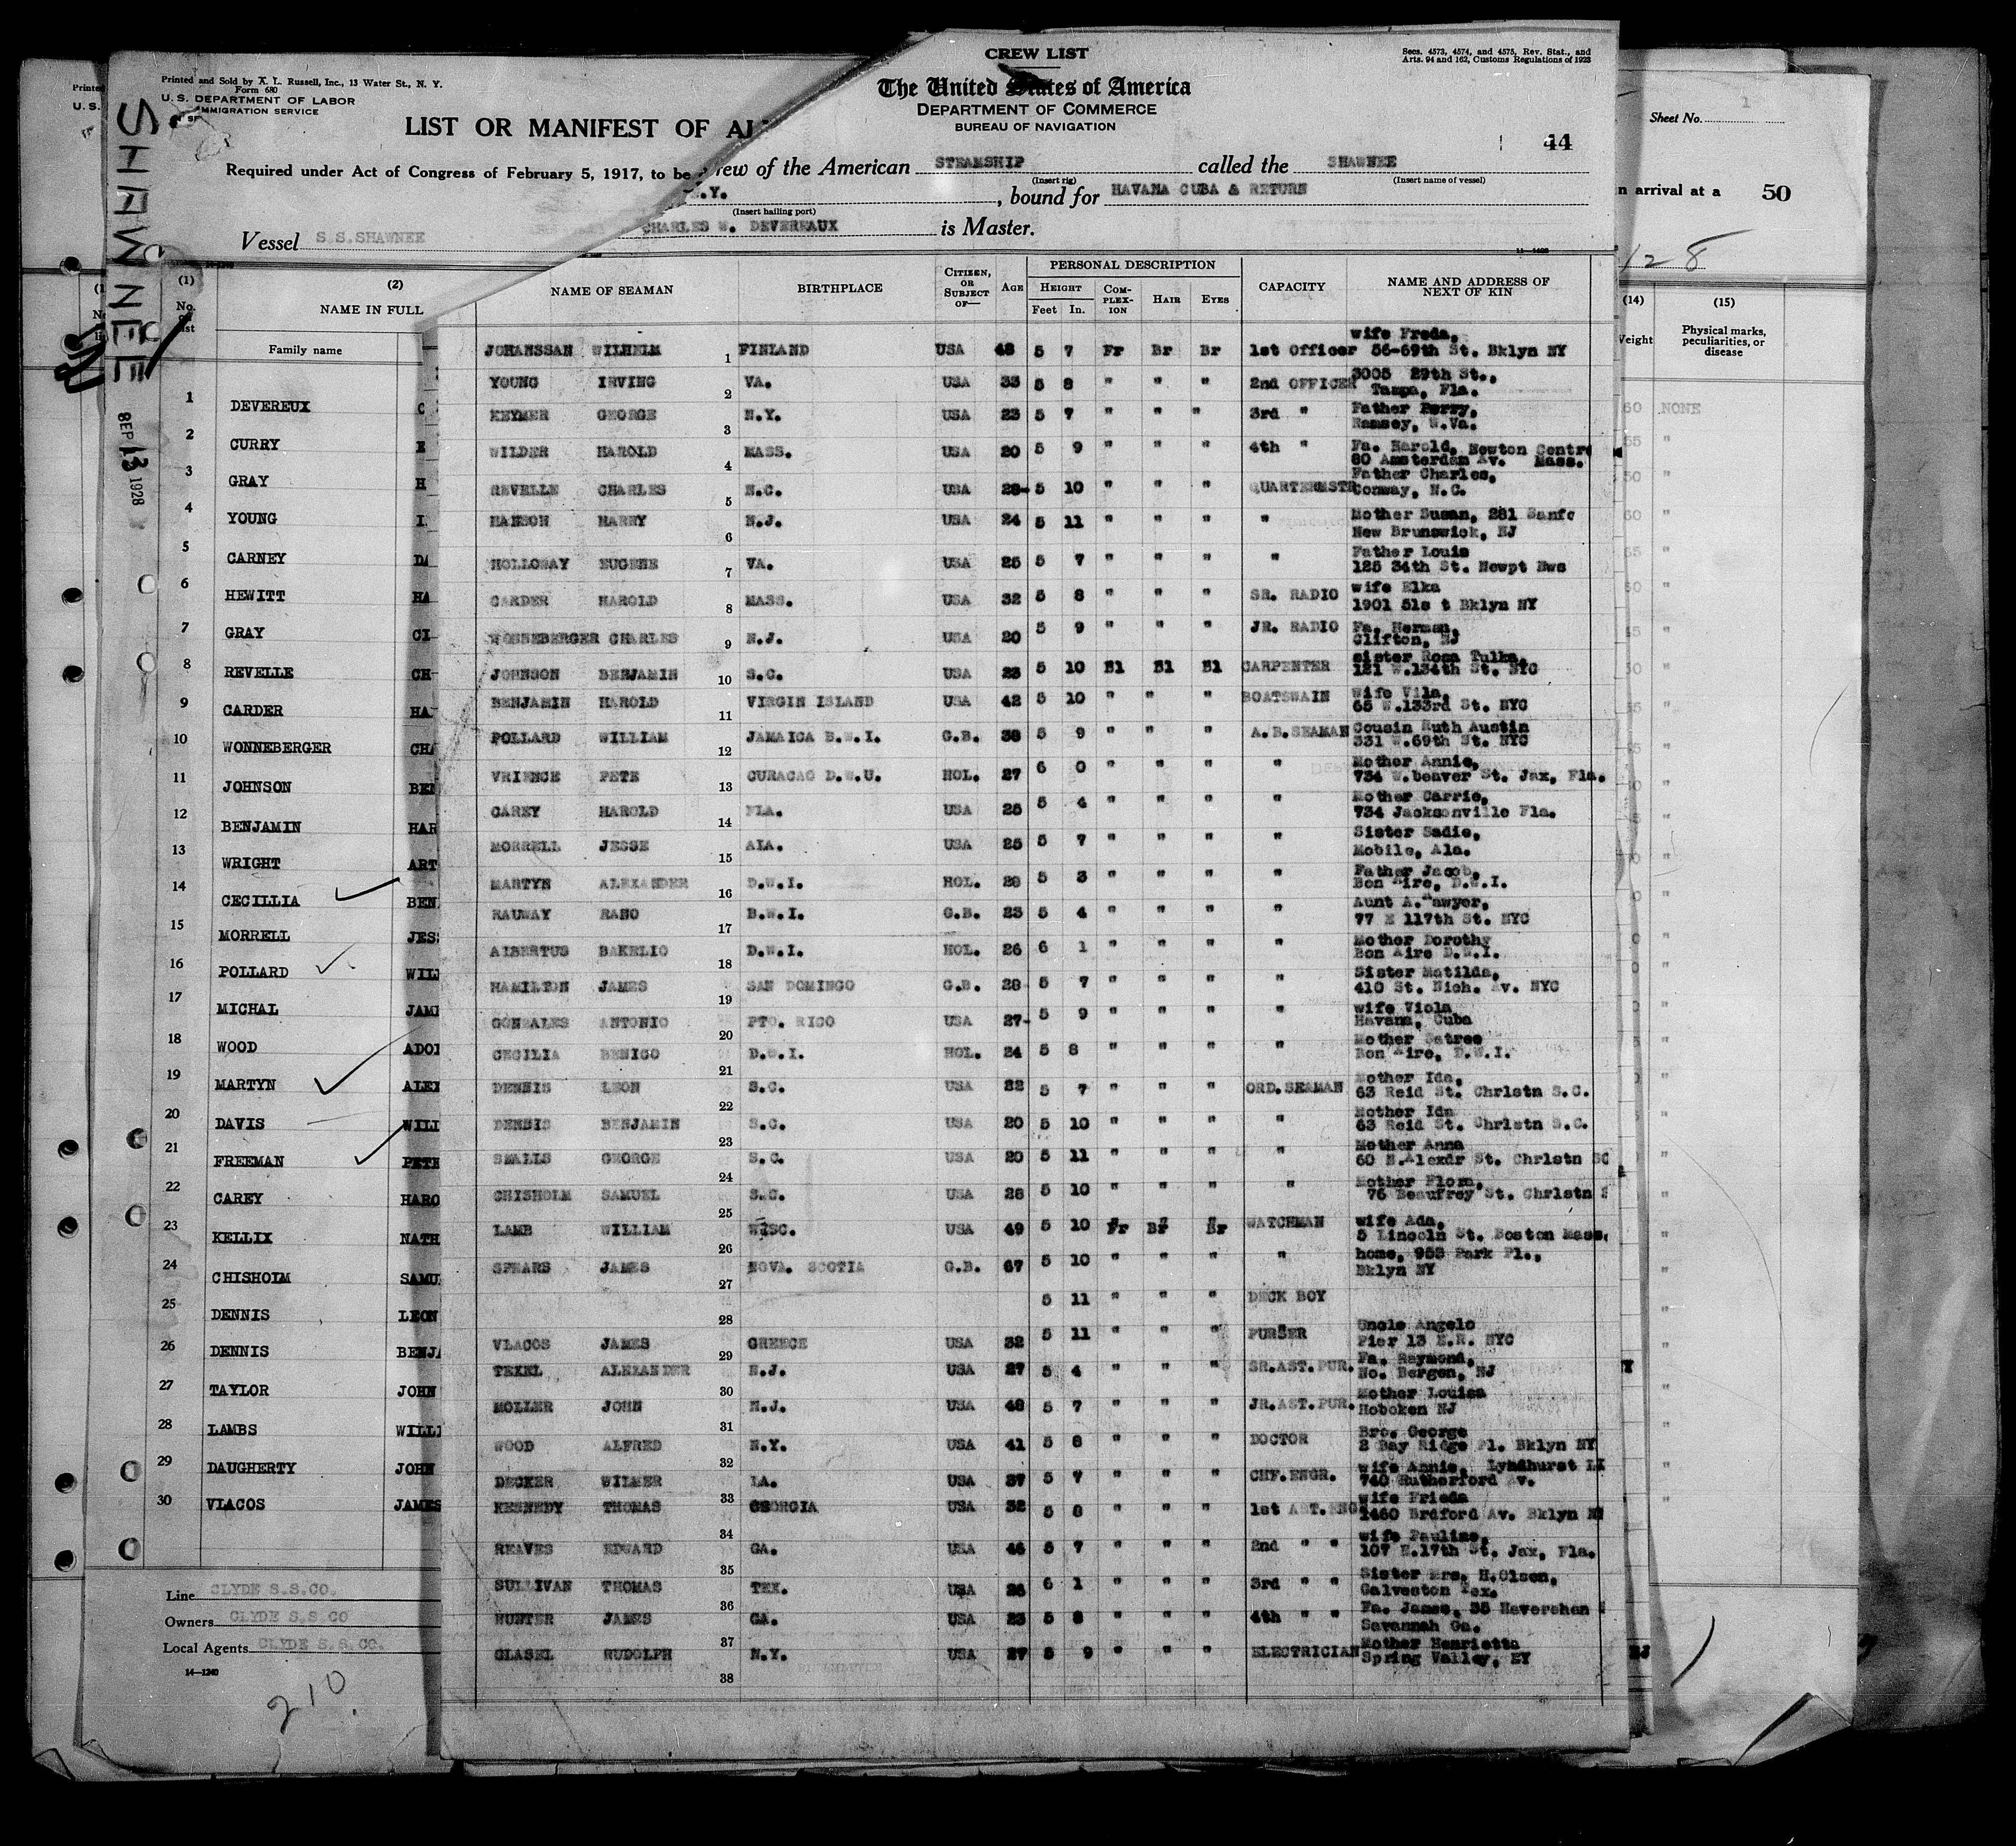 Printed and Sold by X. L. Russell, Inc., 13 Water St., N. Y.
Form 680
U. S. DEPARTMENT OF LABOR
IMMIGRATION SERVICE
LIST OR MANIFEST OF
Required under Act of Congress of February 5, 1917, to be
Vessel S.S.SHAWNEE
SHAWNEE
SEP 13 1928
CREW LIST
Secs. 4573, 4574, and 4575, Rev. Stat., and
Arts. 94 and 162, Customs Regulations of 1923
The United States of America
DEPARTMENT OF COMMERCE
BUREAU OF NAVIGATION
44
rew of the American STEAMSHIP called the SHAWNEE
(Insert rig) (Insert name of vessel)
.Y. , bound for HAVANA CUBA & RETURN
(Insert hailing port)
CHARLES W. DEVEREAUX is Master.
Sheet No. 1
n arrival at a 50
128
(1) (2)
No. on list
NAME IN FULL
Family name
1 DEVEREUX
2 CURRY
3 GRAY
4 YOUNG
5 CARNEY
6 HEWITT HA
7 GRAY
8 REVELLE CH
9 CARDER HA
10 WONNEBERGER CHA
11 JOHNSON BEN
12 BENJAMIN HAR
13 WRIGHT ART
14 CECILLIA BEN
15 MORRELL JES
16 POLLARD WIL
17 MICHAL JAM
18 WOOD ADO
19 MARTYN ALE
20 DAVIS WILL
21 FREEMAN PETE
22 CAREY HARO
23 KELLIX NATH
24 CHISHOLM SAMU
25 DENNIS LEON
26 DENNIS BENJA
27 TAYLOR JOHN
28 LAMBS WILLI
29 DAUGHERTY JOHN
30 VLACOS JAMES
Line CLYDE S.S.CO.
Owners CLYDE S.S.CO
Local Agents CLYDE S.S.CO.
14—1240
210
NAME OF SEAMAN BIRTHPLACE CITIZEN, OR SUBJECT OF— AGE PERSONAL DESCRIPTION CAPACITY NAME AND ADDRESS OF NEXT OF KIN
HEIGHT COMPLEXION HAIR EYES
Feet In.
JOHANSSAN WILHELM 1 FINLAND USA 48 5 7 Fr Br Br 1st Officer wife Freda, 56-69th St. Bklyn NY
YOUNG IRVING 2 VA. USA 33 5 8 " " " 2nd OFFICER 3005 29th St., Tampa, Fla.
KEYMER GEORGE 3 N.Y. USA 23 5 7 " " " 3rd " Father Perry, Ramsey, W.Va.
WILDER HAROLD 4 MASS. USA 20 5 9 " " " 4th " Fa. Harold, Newton Centre 80 Amsterdam Av. Mass.
REVELLE CHARLES 5 N.C. USA 28 5 10 " " " QUARTERMSTR Father Charles, Conway, N.C.
HANSON HARRY 6 N.J. USA 24 5 11 " " " " Mother Susan, 281 Sanfo New Brunswick, NJ
HOLLOWAY EUGENE 7 VA. USA 25 5 7 " " " " Father Louis 125 34th St. Newpt Nws
CARDER HAROLD 8 MASS. USA 32 5 8 " " " SR. RADIO wife Elka 1901 51s t Bklyn NY
WONNEBERGER CHARLES 9 N.J. USA 20 5 9 " " " JR. RADIO Fa. Herman, Clifton, NJ
JOHNSON BENJAMIN 10 S.C. USA 23 5 10 Bl Bl Bl CARPENTER sister Rosa Tulka, 121 W.134th St. NYC
BENJAMIN HAROLD 11 VIRGIN ISLAND USA 42 5 10 " " " BOATSWAIN wife Vila, 65 W.133rd St. NYC
POLLARD WILLIAM 12 JAMAICA B.W.I. G.B. 38 5 9 " " " A.B.SEAMAN Cousin Ruth Austin 331 W.69th St. NYC
VRIENCE PETE 13 CURACAO D.W.U. HOL. 27 6 0 " " " " Mother Annie, 734 W.beaver St. Jax, Fla.
CAREY HAROLD 14 FLA. USA 25 5 4 " " " " Mother Carrie, 734 Jacksonville Fla.
MORRELL JESSE 15 ALA. USA 25 5 7 " " " " Sister Sadie, Mobile, Ala.
MARTYN ALEXANDER 16 D.W.I. HOL. 28 5 3 " " " " Father Jacob, Bon Aire, D.W.I.
RAUWAY RANO 17 B.W.I. G.B. 23 5 4 " " " " Aunt A. awyer, 77 E 117th St. NYC
ALBERTUS BAKELIO 18 D.W.I. HOL. 26 6 1 " " " " Mother Dorothy Bon Aire D.W.I.
HAMILTON JAMES 19 SAN DOMINGO G.B. 28 5 7 " " " " Sister Matilda, 410 St. Nich. Av. NYC
GONZALES ANTONIO 20 PTO. RICO USA 27 5 9 " " " " wife Viola Havana, Cuba
CECILIA BENICO 21 D.W.I. HOL. 24 5 8 " " " " Mother Satree Bon Aire, D.W.I.
DENNIS LEON 22 S.C. USA 22 5 7 " " " ORD.SEAMAN Mother Ida, 63 Reid St. Chrlstn S.C.
DENNIS BENJAMIN 23 S.C. USA 20 5 10 " " " " Mother Ida 63 Reid St. Chrlstn S.C.
SMALLS GEORGE 24 S.C. USA 20 5 11 " " " " Mother Anna 60 N.Alexdr St. Chrlstn SC
CHISHOLM SAMUEL 25 S.C. USA 28 5 10 " " " " Mother Flora, 76 Beaufrey St. Chrlstn
LAMB WILLIAM 26 WISC. USA 49 5 10 Fr Br Br WATCHMAN wife Ada, 5 Lincoln St. Boston Mass.
SPEARS JAMES 27 NOVA. SCOTIA G.B. 67 5 10 " " " " home, 953 Park Pl., Bklyn NY
28 5 11 " " " DECK BOY
VLACOS JAMES 29 GREECE USA 32 5 11 " " " PURSER Uncle Angelo Pier 13 E.R. NYC
TEXEL ALEXANDER 30 N.J. USA 27 5 4 " " " SR.AST.PUR. Fa. Raymond, No. Bergen, NJ
MOLLER JOHN 31 N.J. USA 48 5 7 " " " JR.AST.PUR. Mother Louisa Hoboken NJ
WOOD ALFRED 32 N.Y. USA 41 5 8 " " " DOCTOR Bro. George 2 Bay Ridge Pl. Bklyn NY
DECKER WILMER 33 LA. USA 37 5 7 " " " CHF.ENGR. wife Annie, Lyndhurst 740 Rutherford Av.
KENNEDY THOMAS 34 GEORGIA USA 32 5 8 " " " 1st AST.ENG wife Frieda 1460 Brdford Av. Bklyn NY
REAVES EDWARD 35 GA. USA 46 5 7 " " " 2nd " " wife Pauline, 107 E.17th St. Jax, Fla.
SULLIVAN THOMAS 36 TEX. USA 26 6 1 " " " 3rd " " Sister Mrs. H.Olsen, Galveston Tex.
HUNTER JAMES 37 GA. USA 23 5 8 " " " 4th " " Fa. James, 35 Havershan Savannah Ga.
GLASEL RUDOLPH 38 N.Y. USA 27 5 9 " " " ELECTRICIAN Mother Henrietta Spring Valley, NY
(14) (15)
Weight Physical marks, peculiarities, or disease
NONE